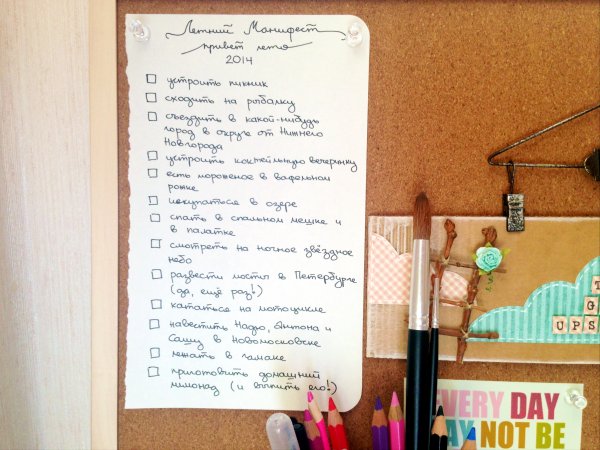 Летний Манифест
привет лето
2014
устроить пикник
сходить на рыбалку
съездить в какой-нибудь
город в округе от Нижнего
Новгорода
устроить коктейльную вечеринку
есть мороженое в вафельном
рожке
искупаться в озере
спать в спальном мешке и
в палатке
смотреть на ночное звёздное
небо
развести мосты в Петербурге
(да, ещё раз!)
кататься на мотоцикле
навестить Надю, Антона и
Сашу в Новомосковске
лежать в гамаке
приготовить домашний
лимонад (и выпить его!)
UPS
EVERY DAY
MAY NOT BE